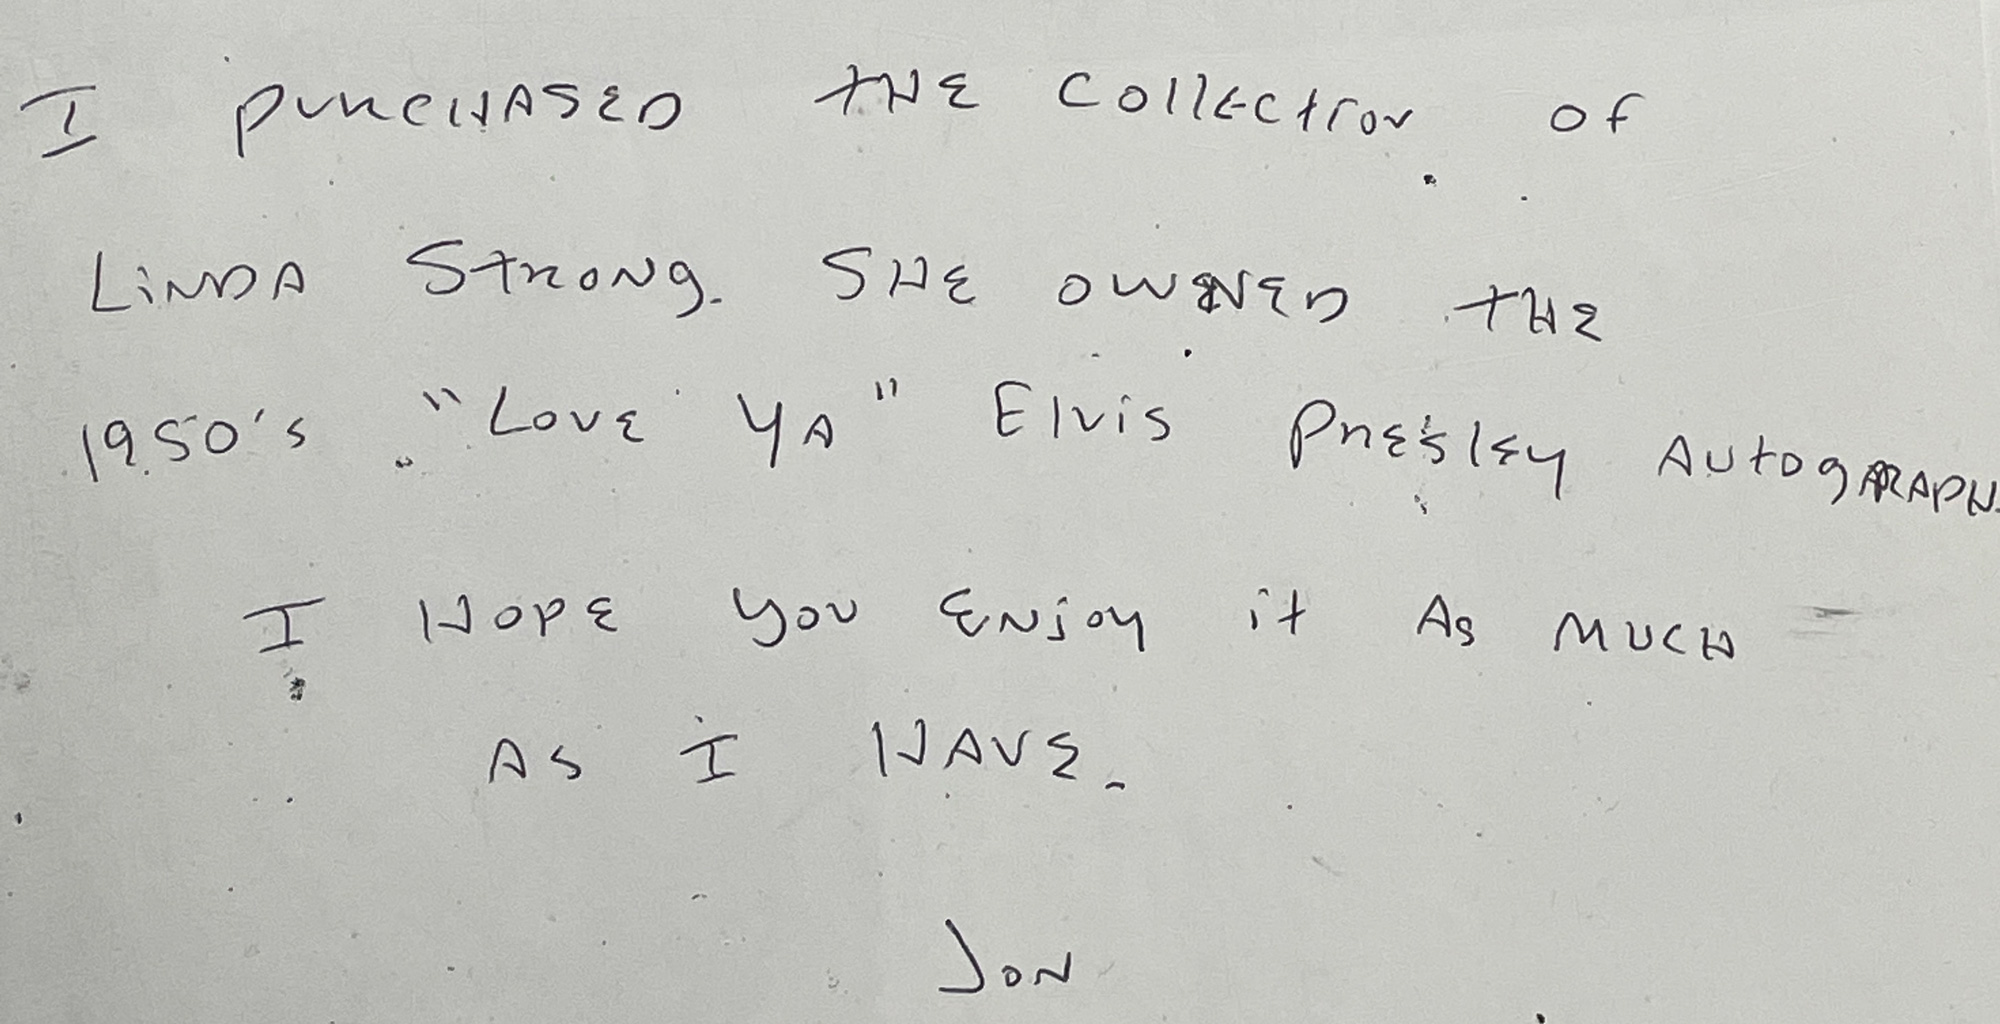 I PURCHASED THE COllEctION OF
LiNDA StRONG. SHE OWNED THE
1950's "LOVE YA" Elvis PRESlEY AUtOGRAPH.
I HOPE YOU ENjOY it AS MUCH
AS I HAVE.
JON